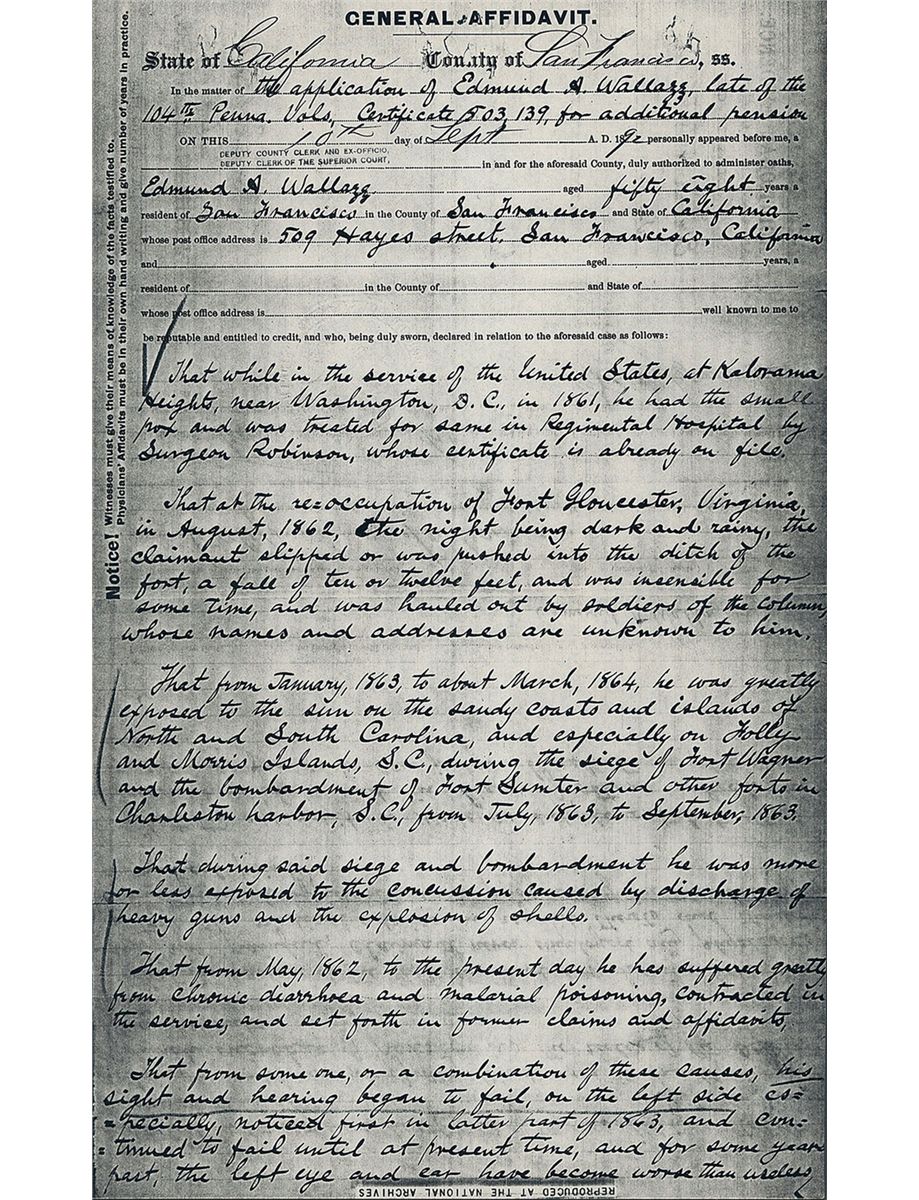 GENERAL AFFIDAVIT.
State of California County of San Francisco, ss.
In the matter of the application of Edmund A. Wallazz, late of the
104th Penna. Vols, Certificate 503,139, for additional pension
ON THIS 10th day of Sept A. D. 1892 personally appeared before me, a
DEPUTY COUNTY CLERK AND EX-OFFICIO,
DEPUTY CLERK OF THE SUPERIOR COURT,
in and for the aforesaid County, duly authorized to administer oaths,
Edmund A. Wallazz aged fifty eight years a
resident of San Francisco in the County of San Francisco and State of California
whose post office address is 509 Hayes street, San Francisco, California
and aged years, a
resident of in the County of and State of
whose post office address is well known to me to
be reputable and entitled to credit, and who, being duly sworn, declared in relation to the aforesaid case as follows:
That while in the service of the United States, at Kalorama
Heights, near Washington, D.C., in 1861, he had the small
pox and was treated for same in Regimental Hospital by
Surgeon Robinson, whose certificate is already on file.
That at the re=occupation of Fort Gloucester, Virginia,
in August, 1862, the night being dark and rainy, the
claimant slipped or was pushed into the ditch of the
fort, a fall of ten or twelve feet, and was insensible for
some time, and was hauled out by soldiers of the column,
whose names and addresses are unknown to him.
That from January, 1863, to about March, 1864, he was greatly
exposed to the sun on the sandy coasts and islands of
North and South Carolina, and especially on Folly
and Morris Islands, S.C., during the siege of Fort Wagner
and the bombardment of Fort Sumter and other forts in
Charleston harbor, S.C., from July, 1863, to September, 1863.
That during said siege and bombardment he was more
or less exposed to the concussion caused by discharge of
heavy guns and the explosion of shells.
That from May, 1862, to the present day he has suffered greatly
from chronic diarrhoea and malarial poisoning, contracted in
the service, and set forth in former claims and affidavits,
That from some one, or a combination of these causes, his
sight and hearing began to fail, on the left side es=
=pecially, noticed first in latter part of 1863, and con=
=tinued to fail until at present time, and for some years
past, the left eye and ear have become worse than useless
Notice! Witnesses must give their means of knowledge of the facts testified to.
Physicians' Affidavits must be in their own hand writing and give number of years in practice.
REPRODUCED AT THE NATIONAL ARCHIVES